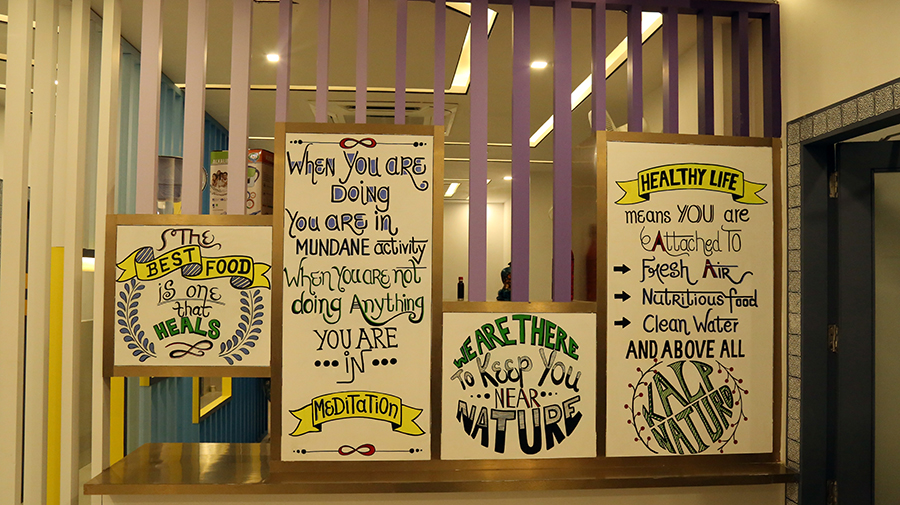 The
BEST FOOD
is one
that
HEALS
When You are
DOING
You are in
MUNDANE activity
When You are not
doing Anything
YOU ARE
IN
MEDITATION
WE ARE THERE
To Keep You
NEAR
NATURE
HEALTHY LIFE
means YOU are
Attached To
Fresh Air
Nutritious food
Clean Water
AND ABOVE ALL
KALP
NATURE